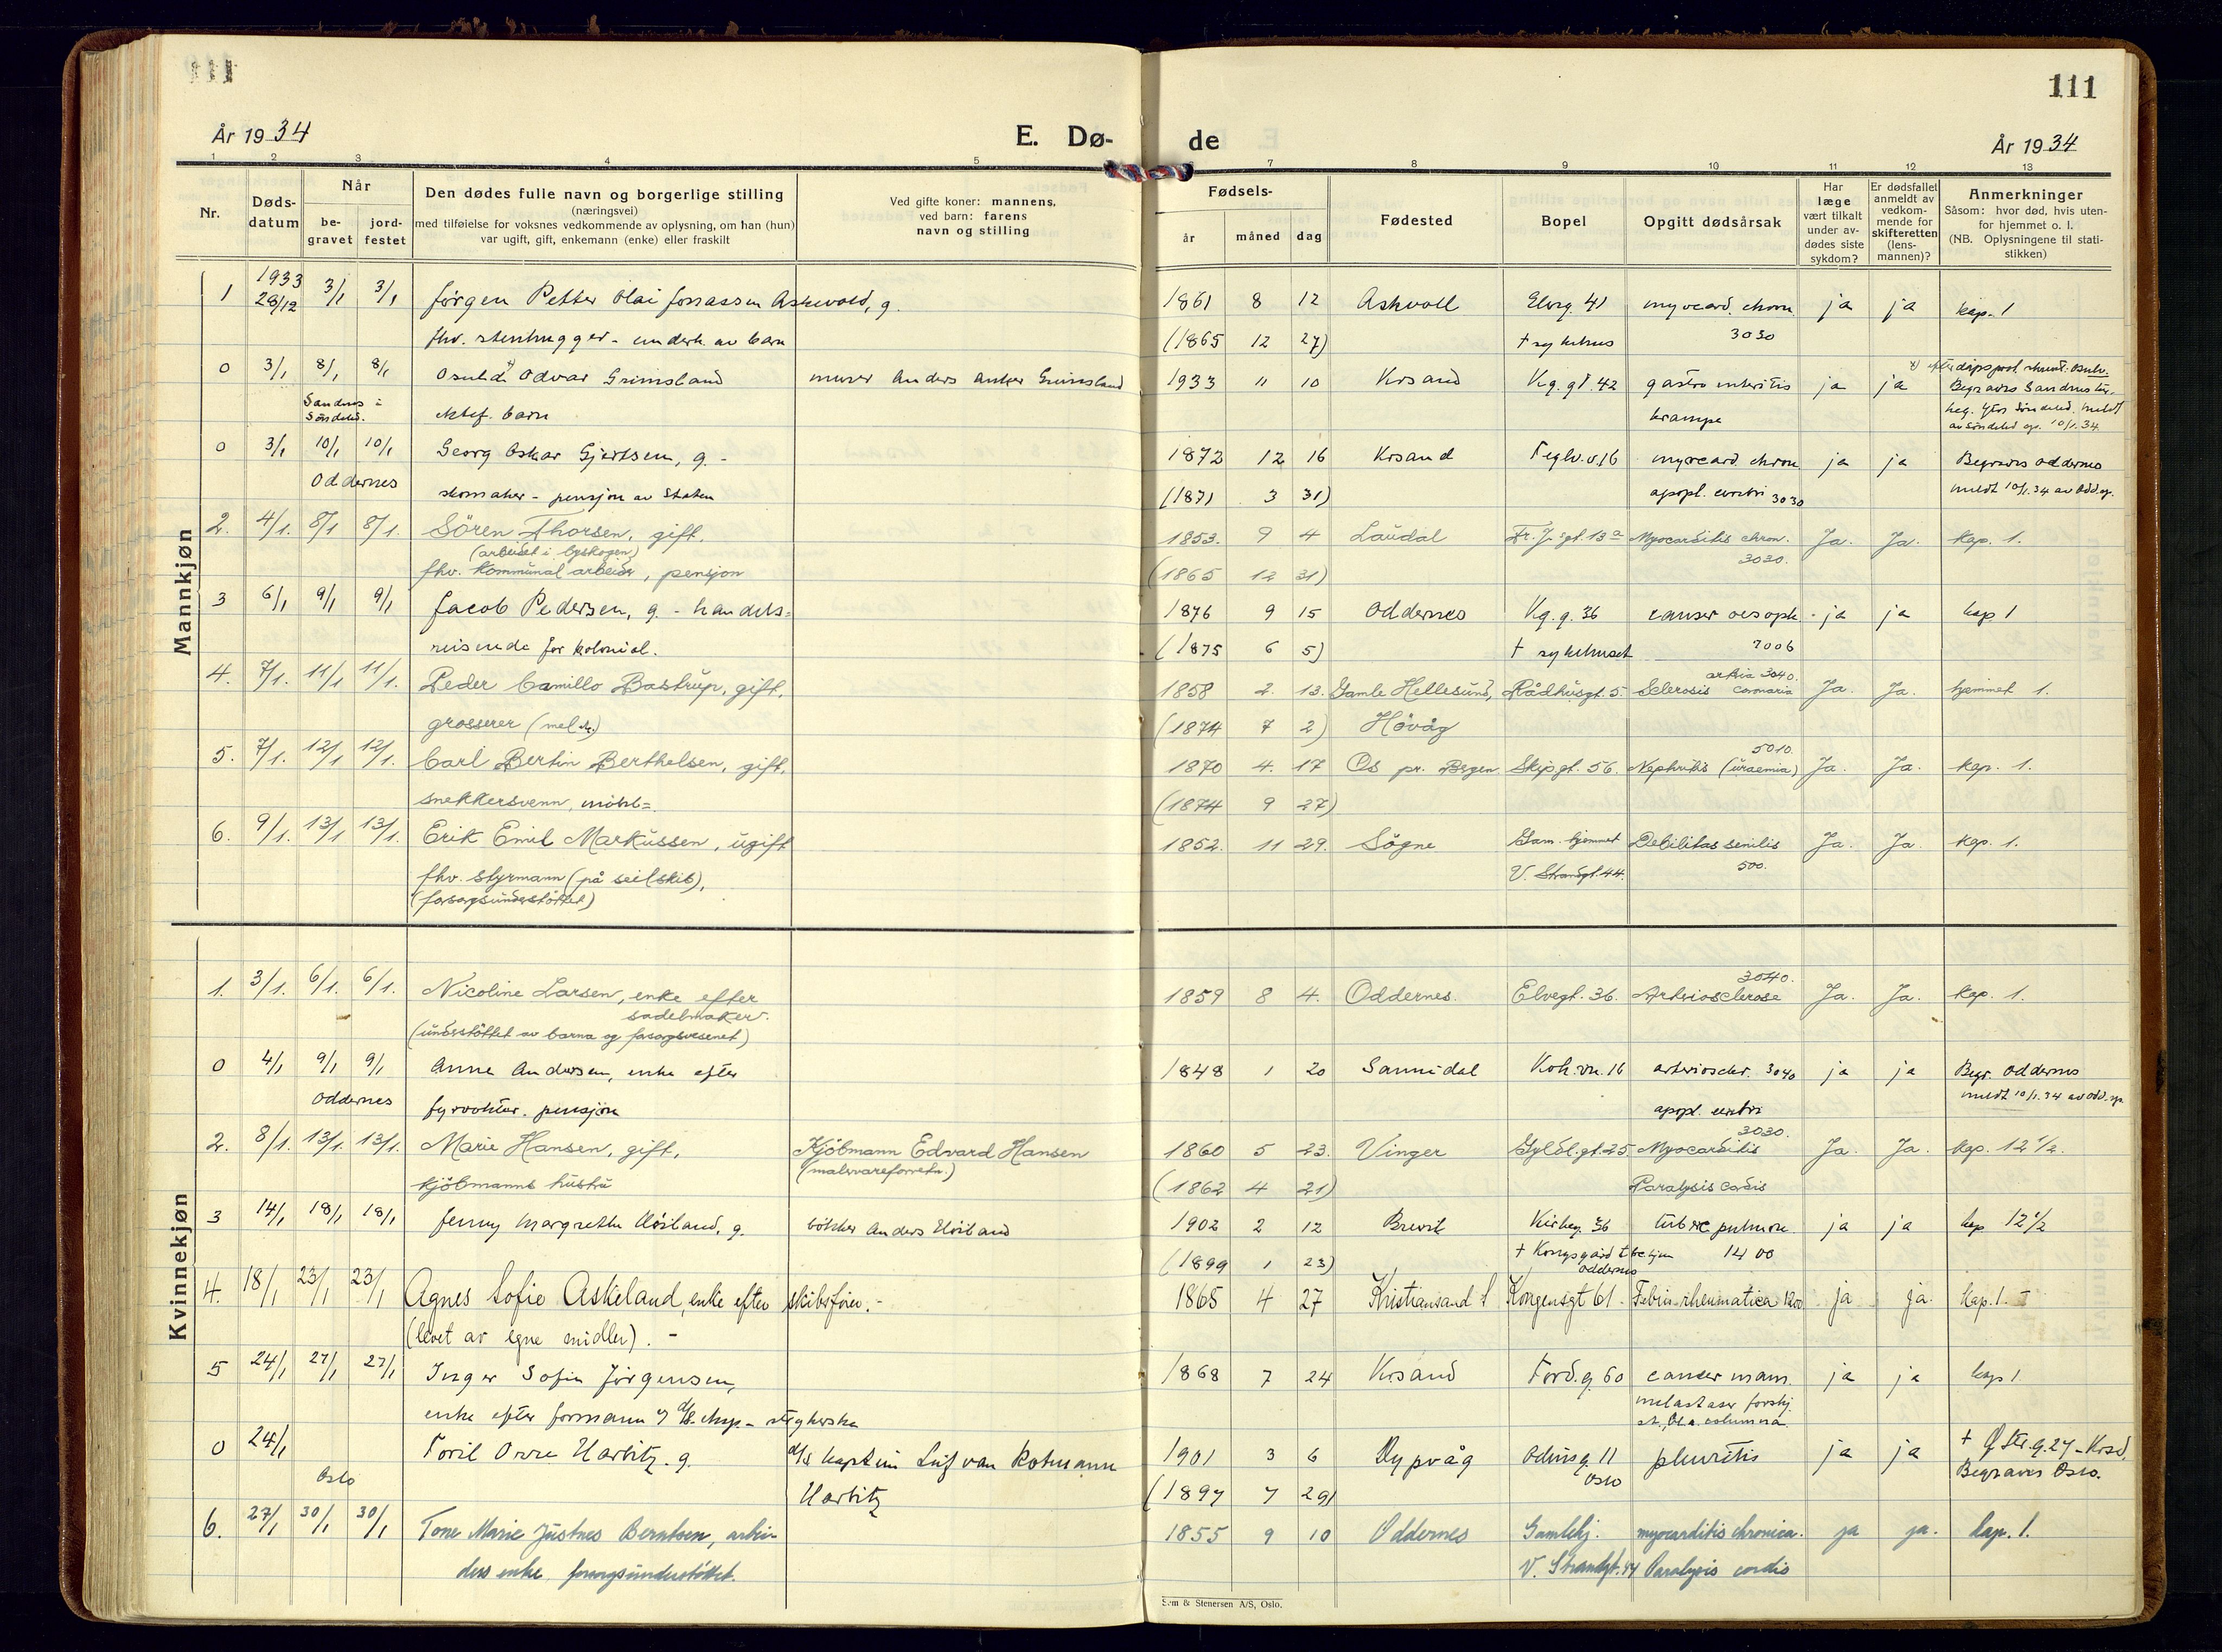 111
111
År 1934
E. Dø-
de
År 1934
1 2 3 4 5 7 8 9 10 11 12 13
Nr.
Døds-
datum
Når
be-
gravet
jord-
festet
Den dødes fulle navn og borgerlige stilling
(næringsvei)
med tilføielse for voksnes vedkommende av oplysning, om han (hun)
var ugift, gift, enkemann (enke) eller fraskilt
Ved gifte koner: mannens,
ved barn: farens
navn og stilling
Fødsels-
år måned dag
Fødested
Bopel
Opgitt dødsårsak
Har
læge
vært tilkalt
under av-
dødes siste
sykdom?
Er dødsfallet
anmeldt av
vedkom-
mende for
skifteretten
(lens-
mannen)?
Anmerkninger
Såsom: hvor død, hvis uten-
for hjemmet o. l.
(NB. Oplysningene til stati-
stikken)
Mannkjøn
1 1933 28/12 3/1 3/1 Jørgen Petter Olai Jonassen Askvold, g. 1861 8 12 Askvoll Elvg. 41 myocard. chron. ja ja kap. 1
fhv. stenhugger - underh. av barn (1865 12 27) † sykehus 3030
0 3/1 8/1 8/1 Odvar Grimsland murer Anders Anker Grimsland 1933 11 10 Krsand Kg. gt. 42 gastro enteritis ja ja
Sandnes i Søndeled. ektef. barn krampe
meldt av Søndeled sp. 10/1.34.
0 3/1 10/1 10/1 Georg Oskar Gjertsen, g. - 1872 12 16 Krsand Teglv. v. 16 myocard. chron ja ja Begraves Oddernes
Oddernes skomaker - pensjon av Staten (1871 3 31) apopl. cerebri 3030 meldt 10/1.34 av Odd. sp.
2. 4/1. 8/1 8/1. Sören Thorsen, gift. 1853. 9 4 Laudal Myocarditis chron. Ja. Ja. Kap. 1.
(arbeidet i byskogen)
fhv. Kommunal arbeider, pensjon (1865 12 31) 3030.
3 6/1 9/1 9/1 Jacob Pedersen, g. - handels= 1876 9 15 Oddernes Kg. g. 36 cancer oesoph. ja ja kap 1
reisende for kolonial. (1875 6 5) † sykehuset 2006
4. 7/1. 11/1 11/1. Peder Camillo Bastrup, gift, 1858 2. 13. Gamle Hellesund, Rådhusgt. 5 Sclerosis coronaria Ja. Ja. hjemmet 1.
grosserer (1874 7 2) Hövåg
5. 7/1. 12/1 12/1. Carl Bertin Berthelsen, gift, 1870 4. 17 Os pr. Bergen Skipgt. 56. Nephritis (uraemia) 5010. Ja. Ja. Kap. 1.
snekkersvenn, (1874 9 27)
6. 9/1. 13/1 13/1. Erik Emil Markussen, ugift 1852. 11 29. Sögne Gam. hjemmet Debilitas senilis Ja. Ja. Kap. 1.
fhv. styrmann (på seilskib), V. Strandgt. 44. 500.
(forsorgsunderstöttet)
Kvinnekjøn
1. 3/1. 6/1. 6/1. Nicoline Larsen, enke efter 1859 8 4. Oddernes. Elvegt. 36. Arteriosclerose 3040. Ja. Ja. Kap. 1.
sadelmaker.
(understöttet av barna og forsorgsvesenet)
0 4/1 9/1 9/1 Anne Andersen, enke efter 1848 1 20 Sannidal Koh. vn. 16 arterioscler. 3040 ja ja Begr. Oddernes
Oddernes fyrvokter. pensjon apopl. cerebri meldt 10/1.34 av Odd. sp.
2. 8/1. 13/1. 13/1. Marie Hansen, gift, Kjöbmann Edvard Hansen 1860 5 23. Vinger Gyldl. gt. 25 Myocarditis 3030. Ja. Ja. Kap. 12 1/2.
kjöbmanns hustru (malervareforretn.) (1862 4 21) Paralysis cordis
3 14/1 18/1 18/1 Jenny Margrethe Höiland, g. bökker Anders Höiland 1902 2 12 Brevik Kirkeg. 36 tuberc pulmon. ja ja kap 12 1/2
(1899 1 23) † Kongsgård tbc. hjem Oddernes 1400
4. 18/1 23/1 23/1 Agnes Sofie Askeland, enke efter skibsfører. - 1865 4 27 Kristiansand S Kongensgt 61 Febris rheumatica 1200 ja ja. kap. 1. -
(levet av egne midler). -
5 24/1 27/1 27/1 Inger Sofie Jörgensen, 1868 7 24 Krsand Tord. g. 60 cancer mam. ja ja kap 1.
enke efter formann metastaser forskj.
columna.
0 24/1 Toril Orre Harbitz. g. kaptein Leif van Rohmann 1901 3 6 Dypvåg Odinsg. 11 pleuritis ja ja
Oslo Harbitz (1897 7 29) Oslo Begraves Oslo.
6. 27/1 30/1 30/1 Tone Marie Justnes Berntsen, arbei- 1855 9 10 Oddernes Gamlehj. myocarditis chronica. ja ja. kap. 1.
ders enke. forsorgsunderstöttet. V. Strandgt. 44 Paralysis cordis
Sem & Stenersen A/S, Oslo.